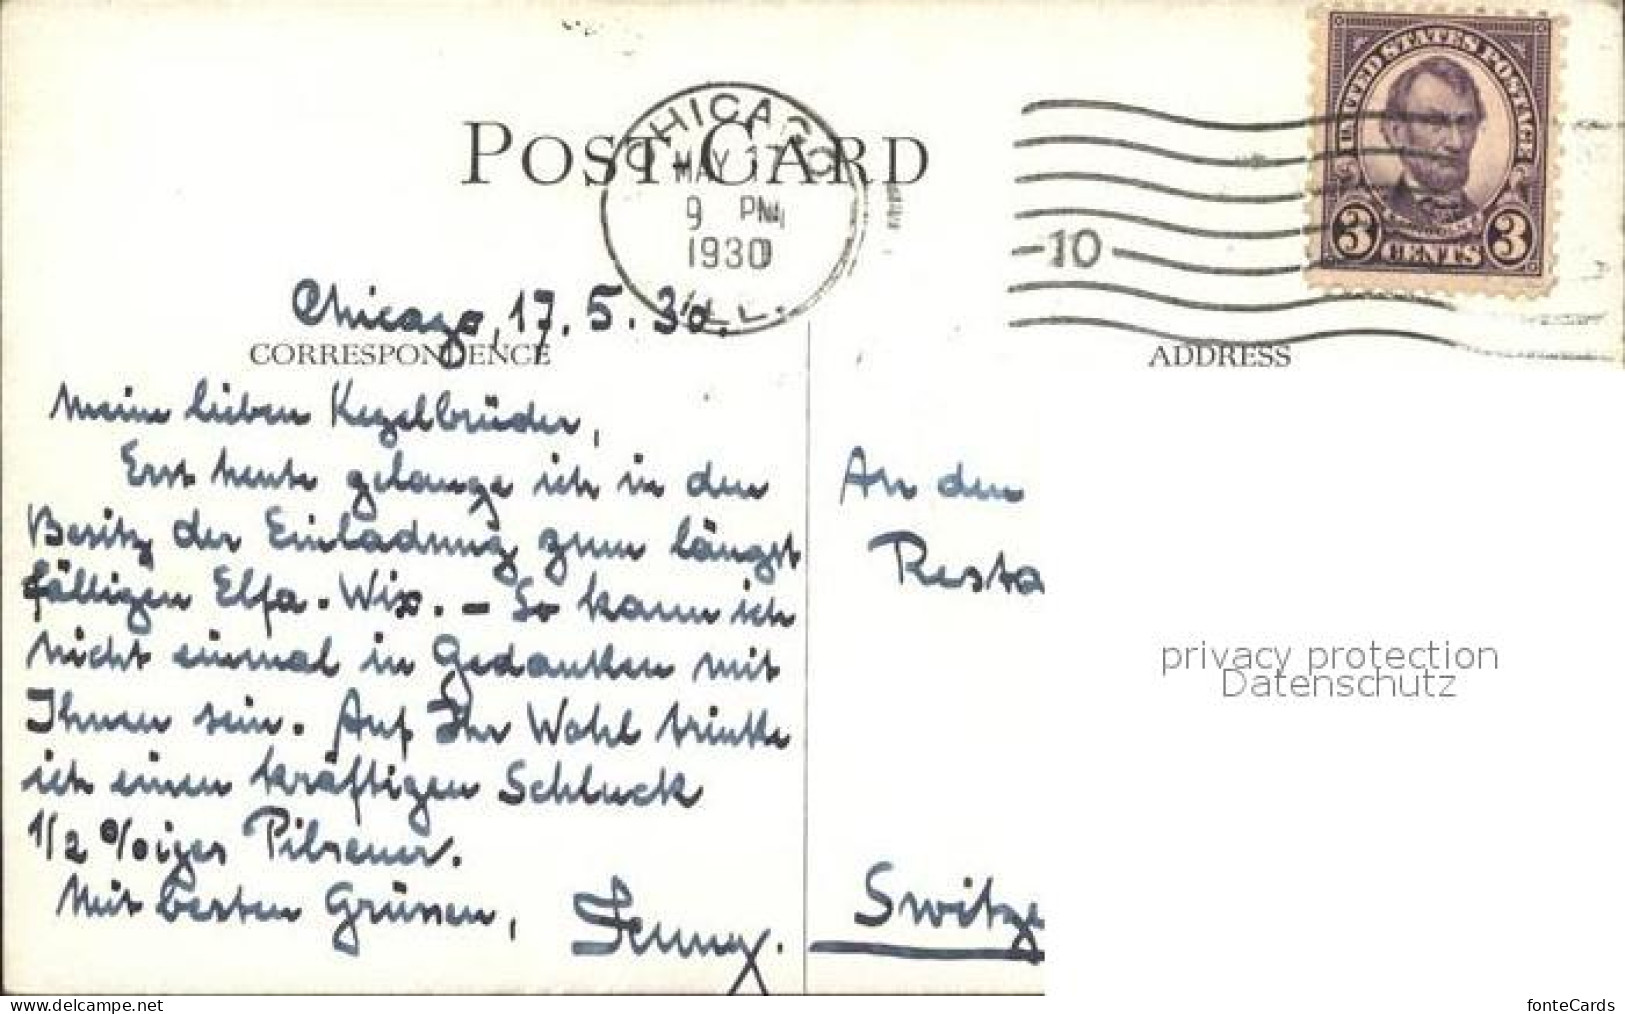 UNITED STATES POSTAGE
3 CENTS 3
CHICAGO
MAY 17
9 PM
1930
ILL.
10
POST CARD
CORRESPONDENCE
ADDRESS
Chicago, 17. 5. 30.
Meine lieben Kegelbrüder,
Erst heute gelange ich in den
Besitz der Einladung zum längst
fälligen Elfa-Wix. - So kann ich
nicht einmal in Gedanken mit
Ihnen sein. Auf Ihr Wohl trinke
ich einen kräftigen Schluck
1/2 %iges Pilsener.
Mit besten Grüssen,
An den
Resta
Switze
privacy protection
Datenschutz
www.delcampe.net
fonteCards